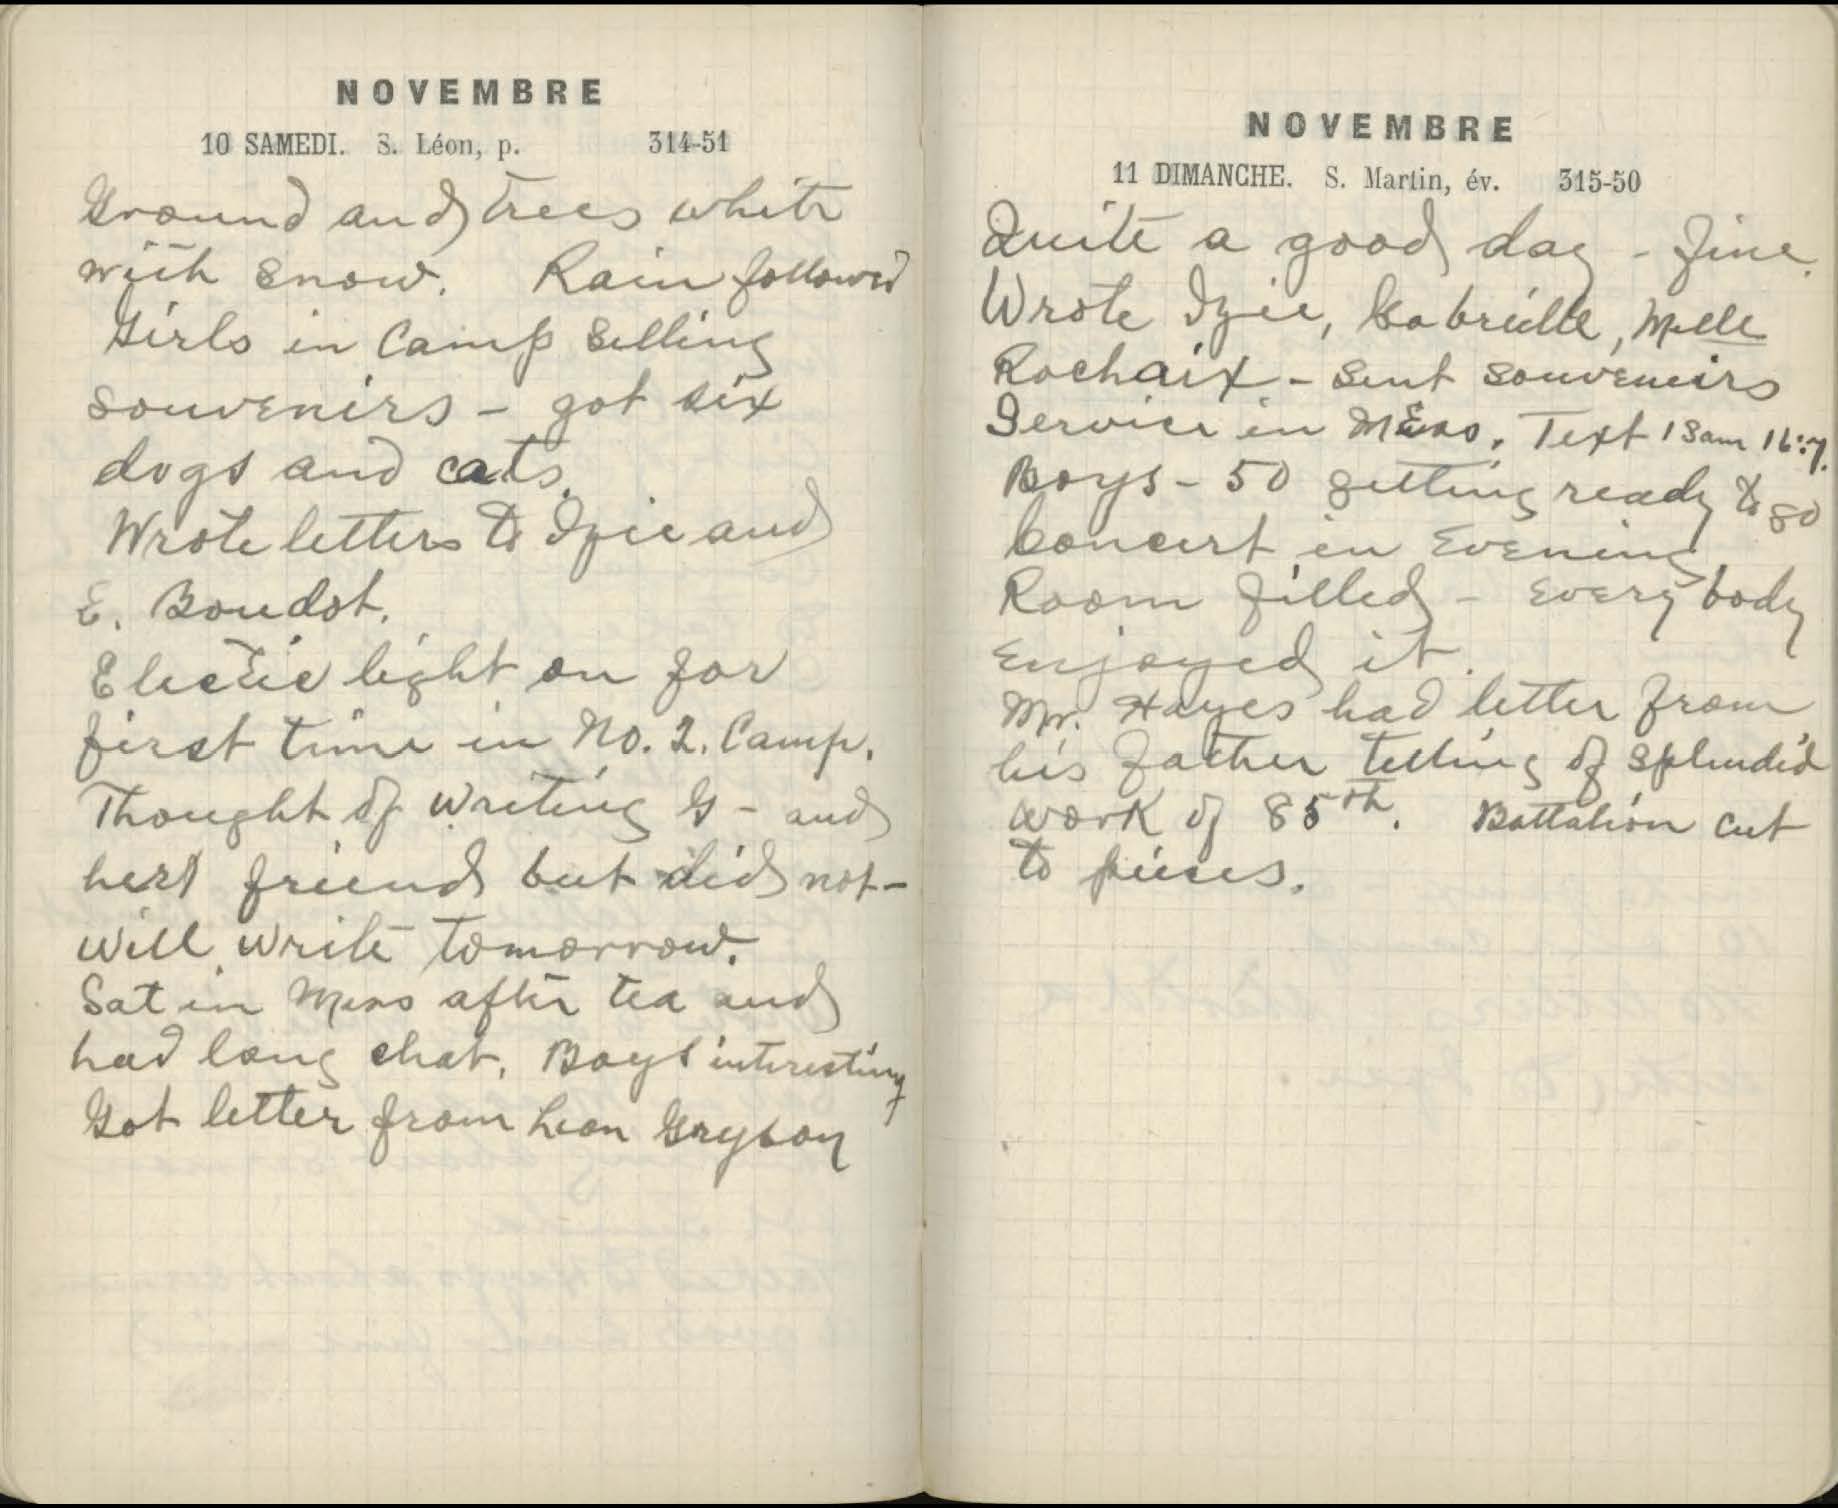 NOVEMBRE
10 SAMEDI. S. Léon, p. 314-51
Ground and trees white
with snow. Rain followed
Girls in Camp selling
souvenirs - got six
dogs and cats.
Wrote letters to Izie and
E. Boudot.
Electric light on for
first time in No. 2. Camp.
Thought of writing G - and
her friend but did not -
will write tomorrow.
Sat in Mess after tea and
had long chat. Boys interesting
Got letter from Leon Gryson
NOVEMBRE
11 DIMANCHE. S. Martin, év. 315-50
Quite a good day - fine.
Wrote Izie, Gabrielle, Melle
Rochaix - sent souvenirs
Service in Mess. Text 1 Sam 16:7.
Boys - 50 getting ready to go
Concert in Evening
Room filled - Every body
enjoyed it.
Mr. Hayes had letter from
his father telling of splendid
work of 85th. Battalion cut
to pieces.